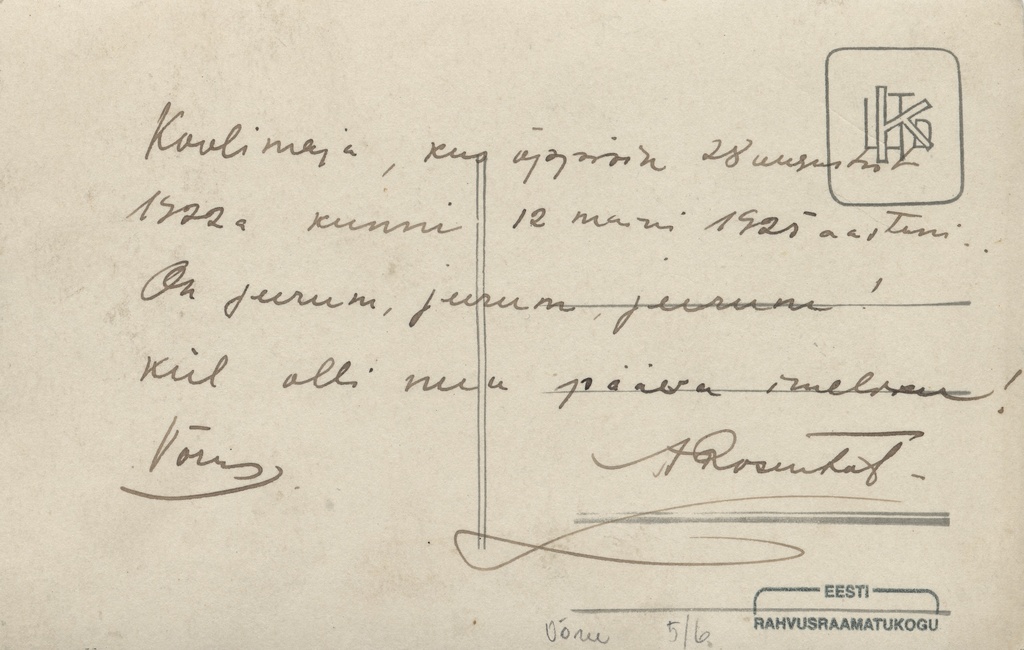 Koolimaja, kus õppisin 28 augustist
1922a kunni 12 maini 1925 aasteni.
Oh jerum, jerum, jerum!
kül olli mu päeva imelisu!
Võrus
A Rosenthal
EESTI
RAHVUSRAAMATUKOGU
Võru 5/6